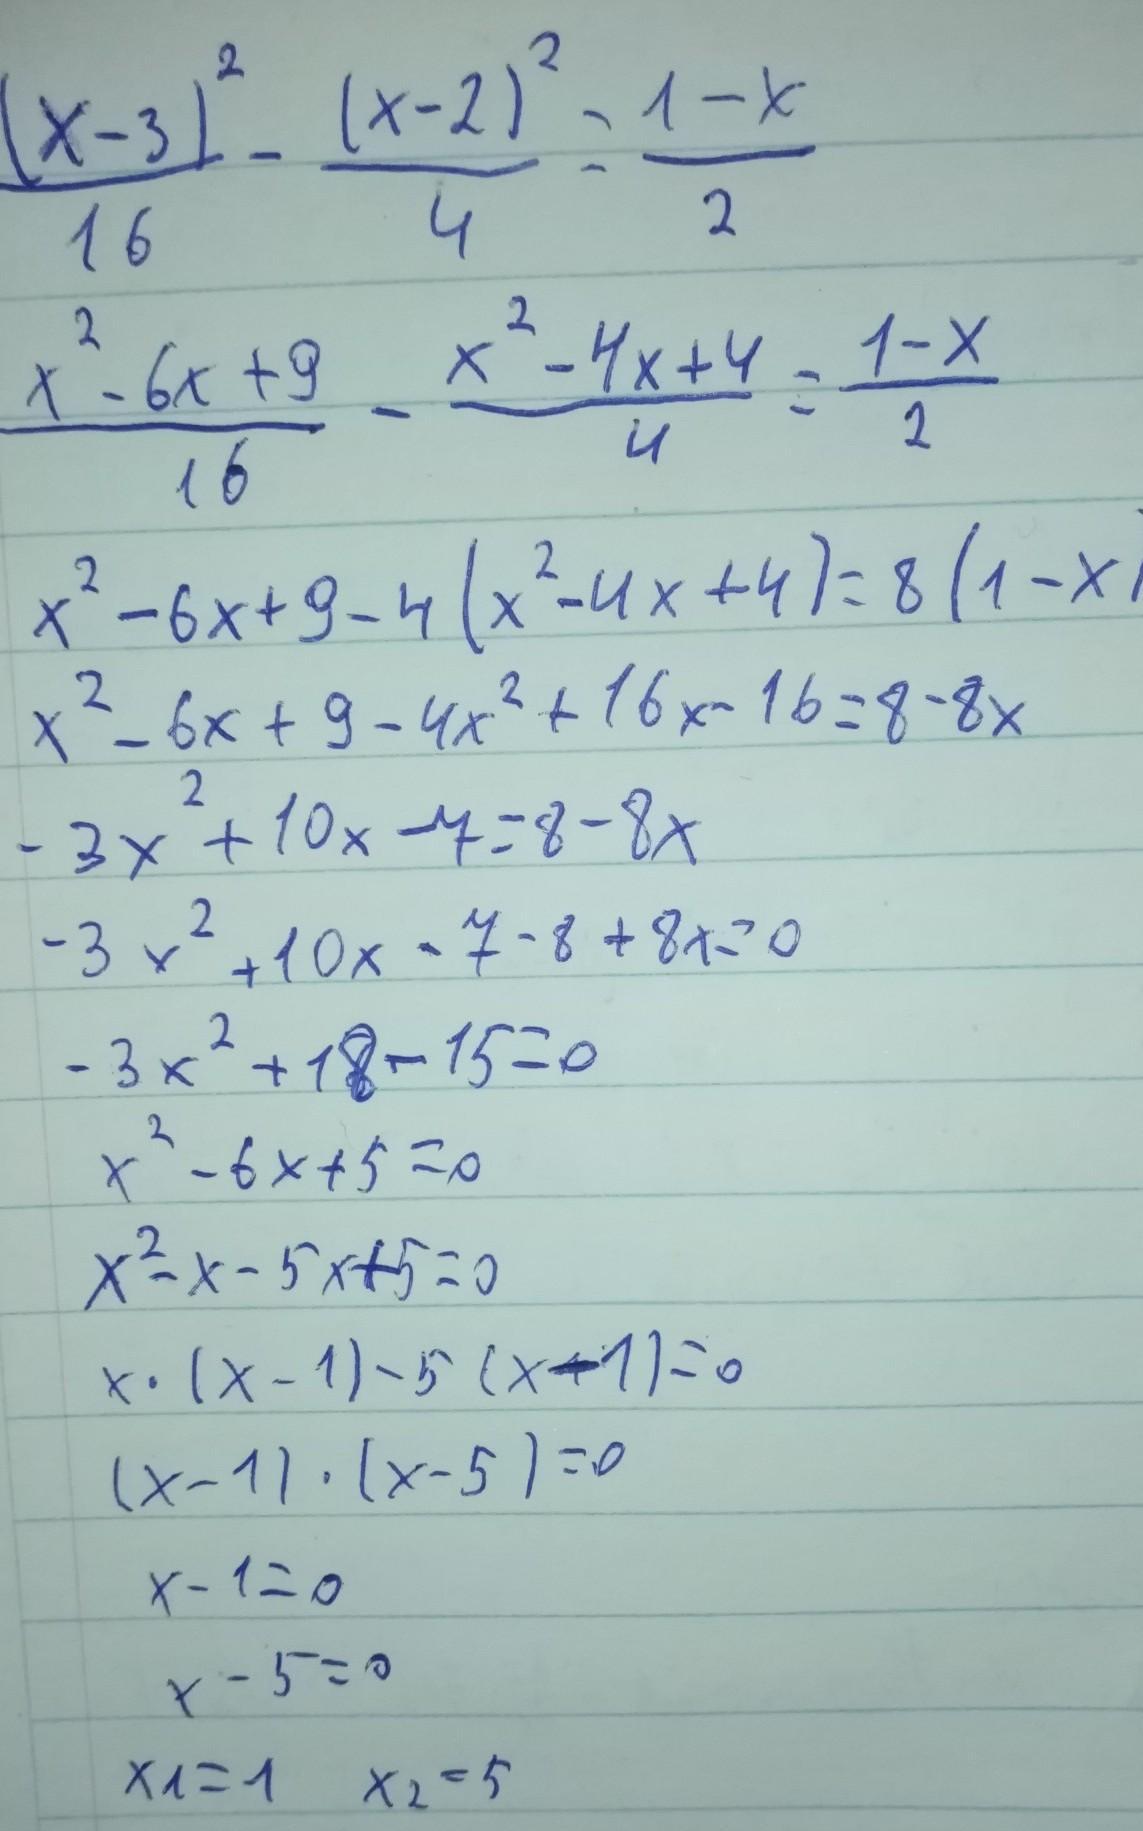 (x-3)²/16 - (x-2)²/4 = 1-x/2
x²-6x+9/16 - x²-4x+4/4 = 1-x/2
x²-6x+9-4(x²-4x+4)=8(1-x)
x²-6x+9-4x²+16x-16=8-8x
-3x²+10x-7=8-8x
-3x²+10x-7-8+8x=0
-3x²+18-15=0
x²-6x+5=0
x²-x-5x+5=0
x·(x-1)-5(x-1)=0
(x-1)·(x-5)=0
x-1=0
x-5=0
x1=1 x2=5